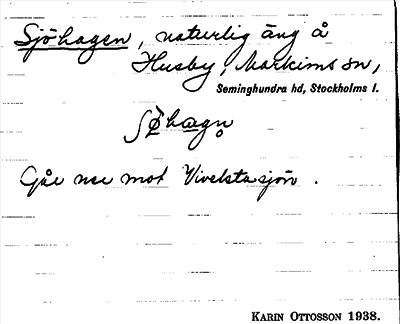 Sjöhagen, naturlig äng å
Husby, Markims sn,
Seminghundra hd, Stockholms l.
Går ner mot Vivelstasjön.
KARIN OTTOSSON 1938.